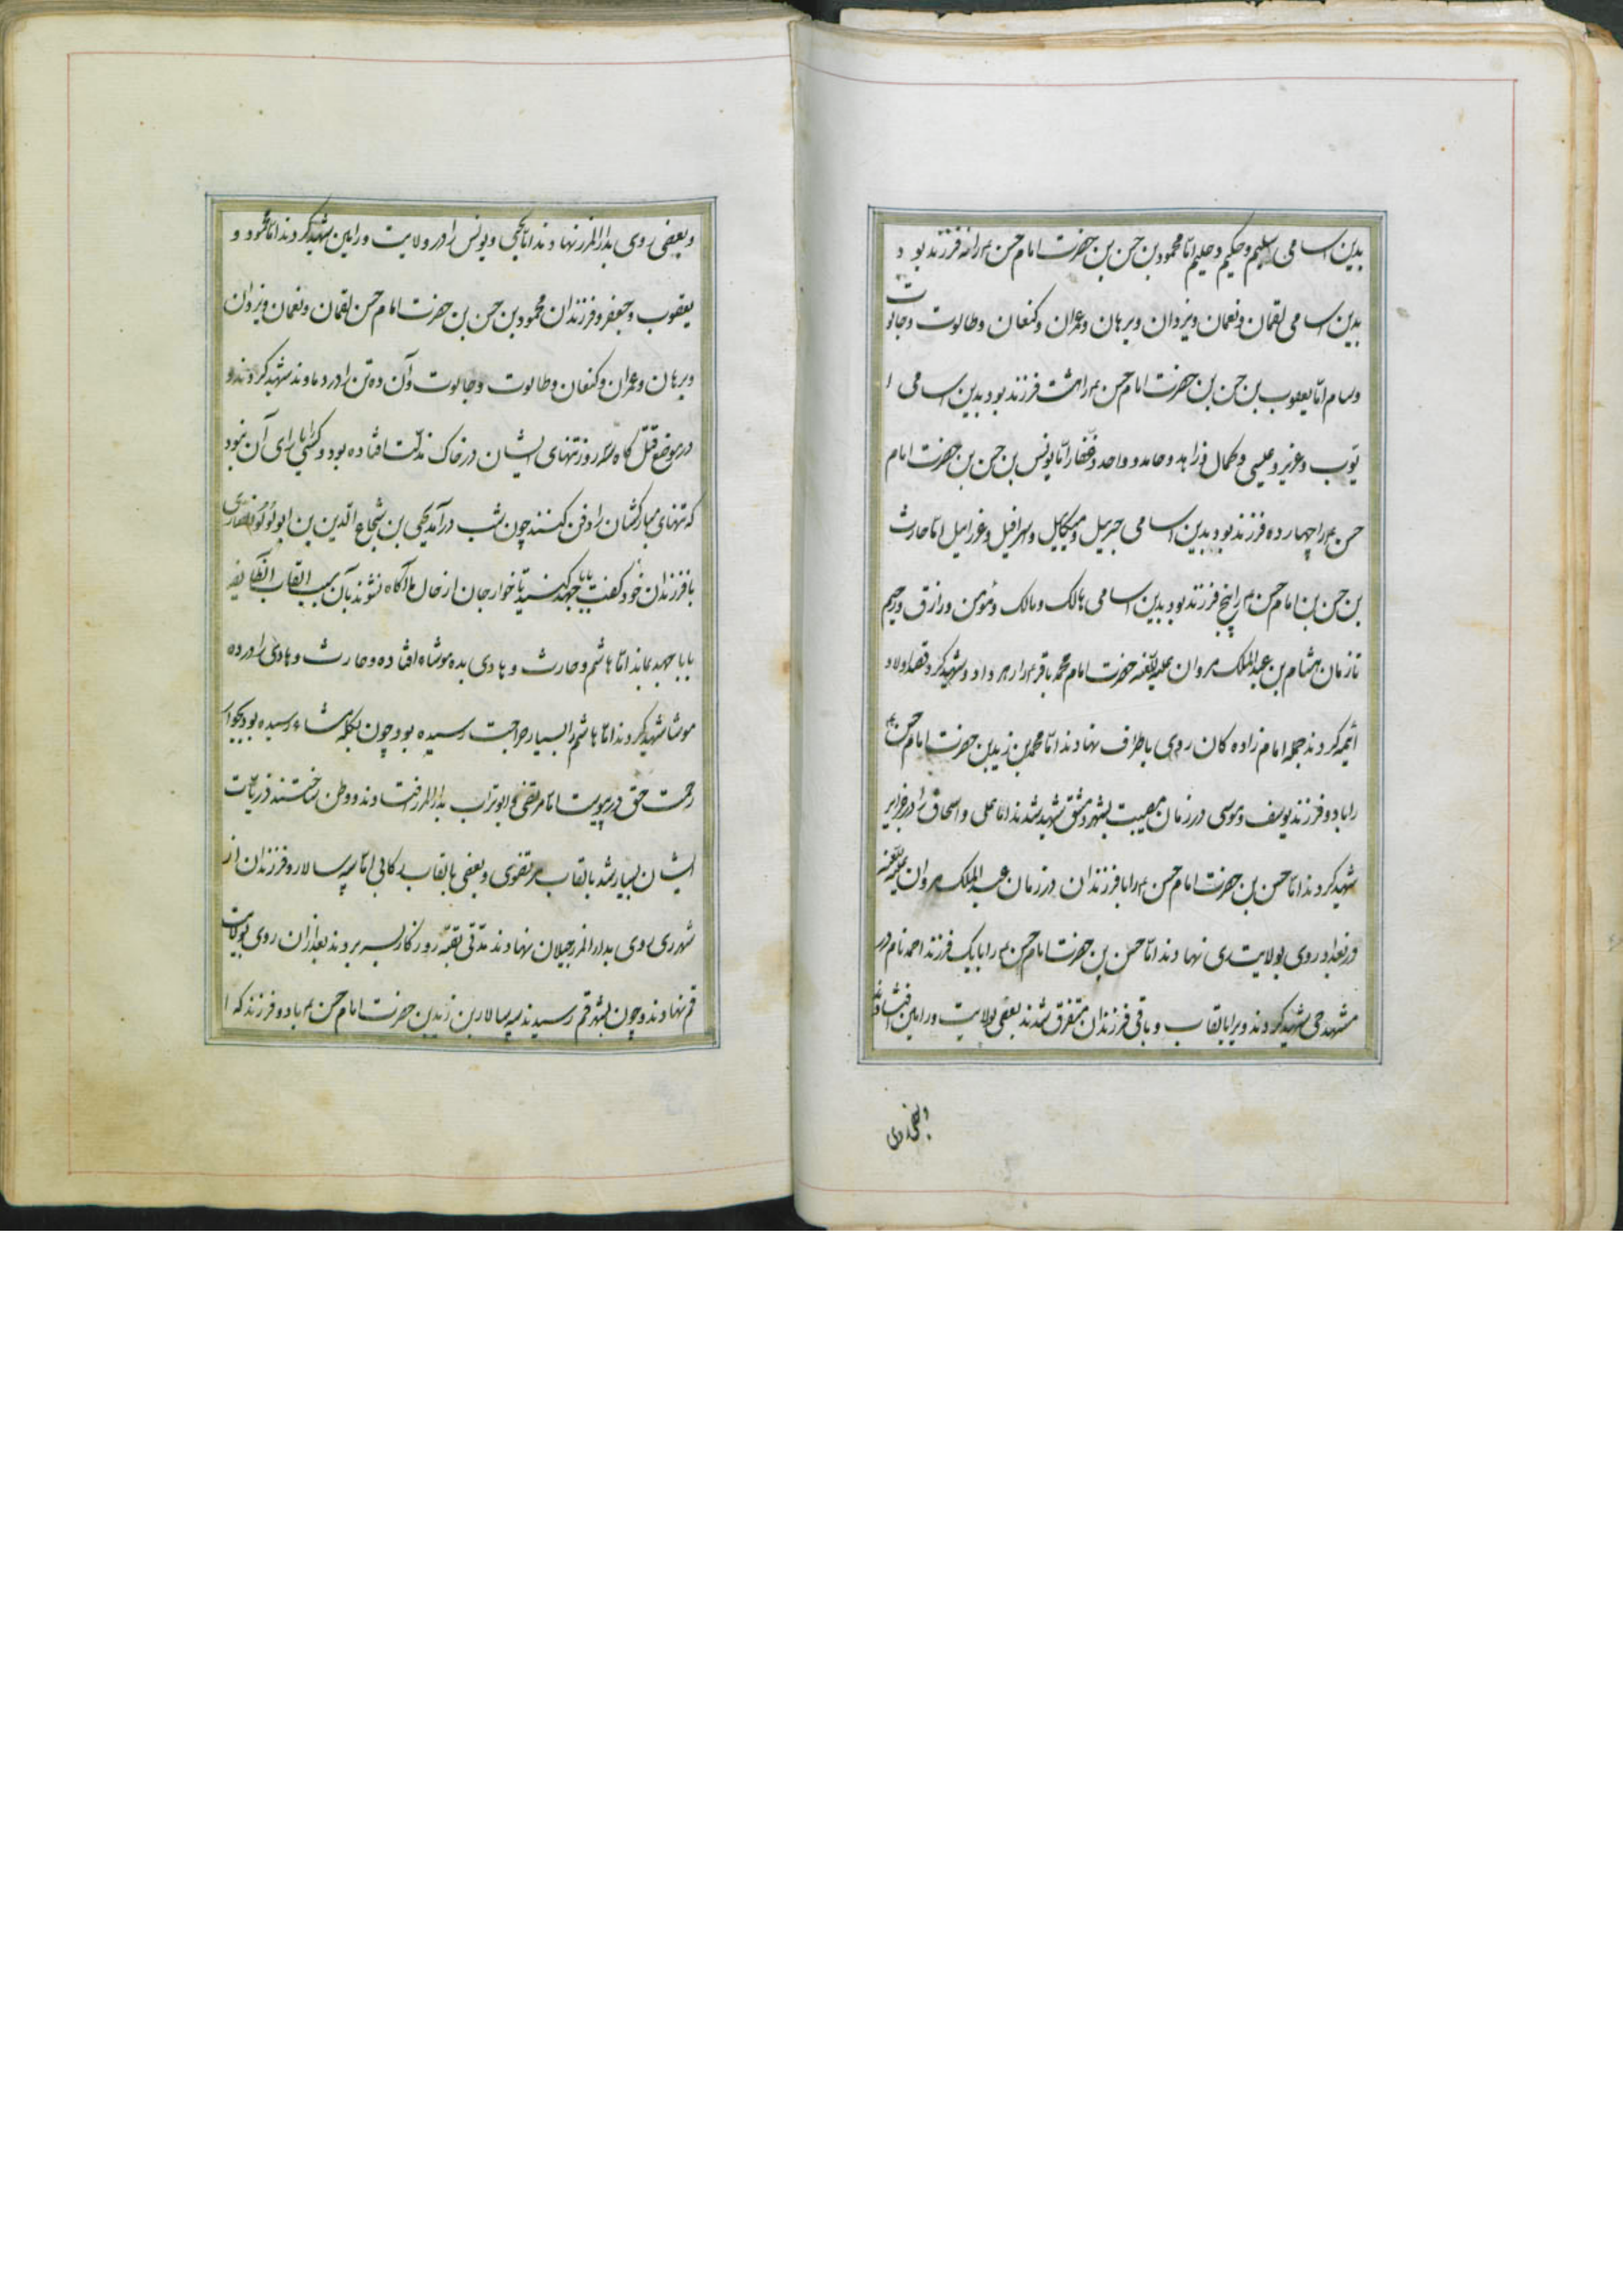 بدین اسامی سلیم و حکیم و حلیم امّا محمود بن حسن بن حضرت امام حسن ع را نه فرزند بود
بدین اسامی لقمان و نعمان و یزدان و برهان و عمران و کنعان و طالوت و جالوت
و سام امّا یعقوب بن حسن بن حضرت امام حسن ع را هشت فرزند بود بدین اسامی ا
یّوب و عزیر و عیسی و کمال و زاهد و حامد و واحد و غفار امّا یونس بن حسن بن حضرت امام
حسن ع را چهارده فرزند بود بدین اسامی جبرییل و میکاییل و اسرافیل و عزراییل امّا حارث
بن حسن بن امام حسن ع را پنج فرزند بود بدین اسامی هالک و مالک و مؤمن و رازق و رحیم
تا زمان هشام بن عبدالملک مروان علیه اللعنه حضرت امام محمد باقر ع را زهر داد و شهید کرد و قصد اولاد
ائمه کردند جمله امام زاده کان روی باطراف نهادند امّا محمد بن زید بن حضرت امام حسن ع
را با دو فرزند یوسف و موسی در زمان مصیبت بشهر دمشق شهید شدند امّا علی و اسحاق را در جزایر
شهید کردند امّا حسن بن حضرت امام حسن ع را با فرزندان در زمان عبدالملک مروان علیه اللعنه
در بغداد روی بولایت ری نهادند امّا حسن بن حضرت امام حسن ع را با یک فرزند احمد نام در
مشهد حی شهید کردند ویرا بالقاب و باقی فرزندان متفرق شدند بعضی بولایت ورامین افتادند
و بعضی روی
و بعضی روی بدارالمرز نهادند امّا یحیی و یونس را در ولایت ورامین شهید کردند امّا محمود و
یعقوب و جعفر و فرزندان محمود بن حسن بن حضرت امام حسن لقمان و نعمان و یزدان
و برهان و عمران و کنعان و طالوت و جالوت و آن ده تن را در دماوند شهید کردند و
در موضع قتل کاه سه روز تنهای ایشان در خاک مذلّت افتاده بود و کسی را یارای آن نبود
که تنهای مبارکشان را دفن کنند چون شب درآمد یحیی بن شجاع الدین بن ابولؤلؤ انصاری
با فرزندان خود گفت بابا جهد کنید تا خوارجان از حال ما آگاه نشوند بآن سبب القاب آنطایفه
بابا جهد بماند امّا هاشم و حارث و هادی بده موشاه افتاده و حارث و هادی را در ده
موشا شهید کردند امّا هاشم را بسیار جراحت رسیده بود چون بکله مشاء رسیده بود بجوار
رحمت حق در پیوست امّا مرتضی و ابوتراب بدارالمرز افتادند و وطن ساختند ذریّات
ایشان بسیار شد بالقاب مرتضوی و بعضی بالقاب رکابی امّا سپه سالار و فرزندان از
شهر ری روی بدارالمرز جیلان نهادند مدّتی بقیّه روزگار بسر بردند بعد از آن روی بولایت
قم نهادند و چون بشهر قم رسیدند سپه سالار بن زید بن حضرت امام حسن ع با دو فرزند که ا